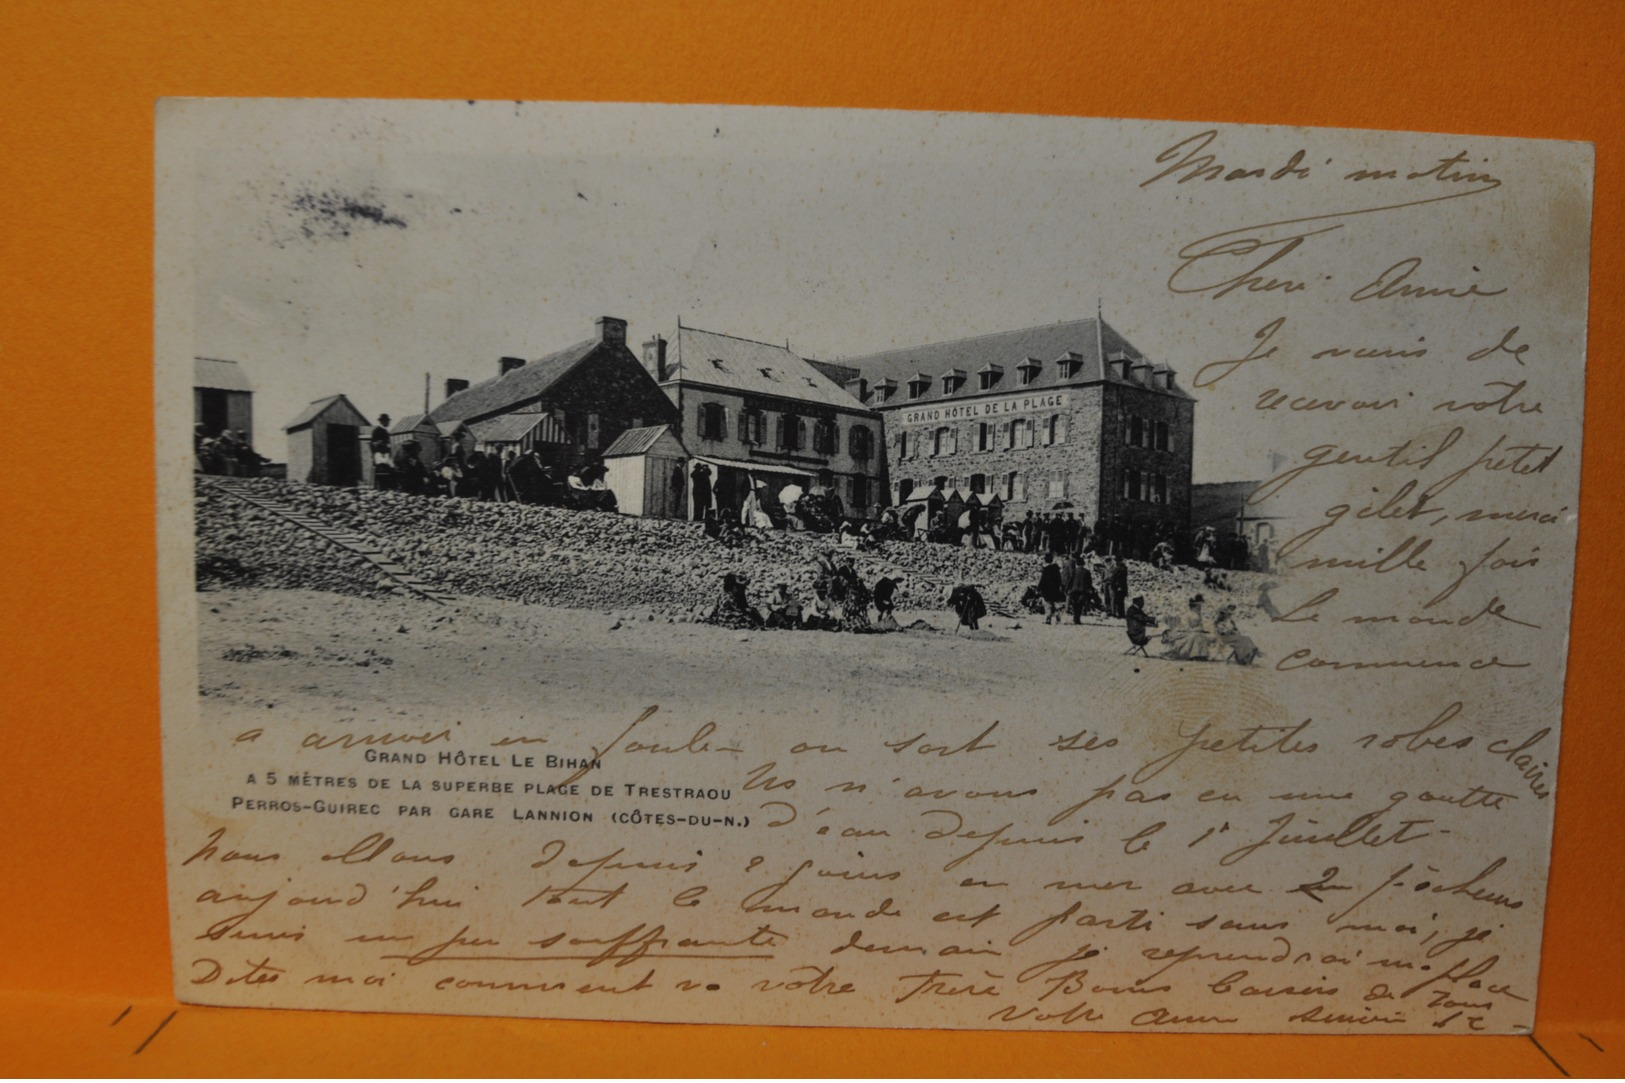 Mardi matin
Cheri Amie
Je viens de
recevoir votre
gentil petit
gilet, merci
mille fois
Le monde
commence
a arriver en foule on sort ses petites robes claires
Ns n'avons pas eu une goutte
d'eau depuis le 1r Juillet -
Nous allons depuis 2 jours en mer avec 2 pêcheurs
aujourd'hui tout le monde est parti sans moi, je
suis un peu souffrante demain je reprendrai ma place
Dites moi comment va votre Frère Bons baisers de tous
Votre amie
GRAND HÔTEL DE LA PLAGE
GRAND HÔTEL LE BIHAN
A 5 MÈTRES DE LA SUPERBE PLAGE DE TRESTRAOU
PERROS-GUIREC PAR GARE LANNION (CÔTES-DU-N.)